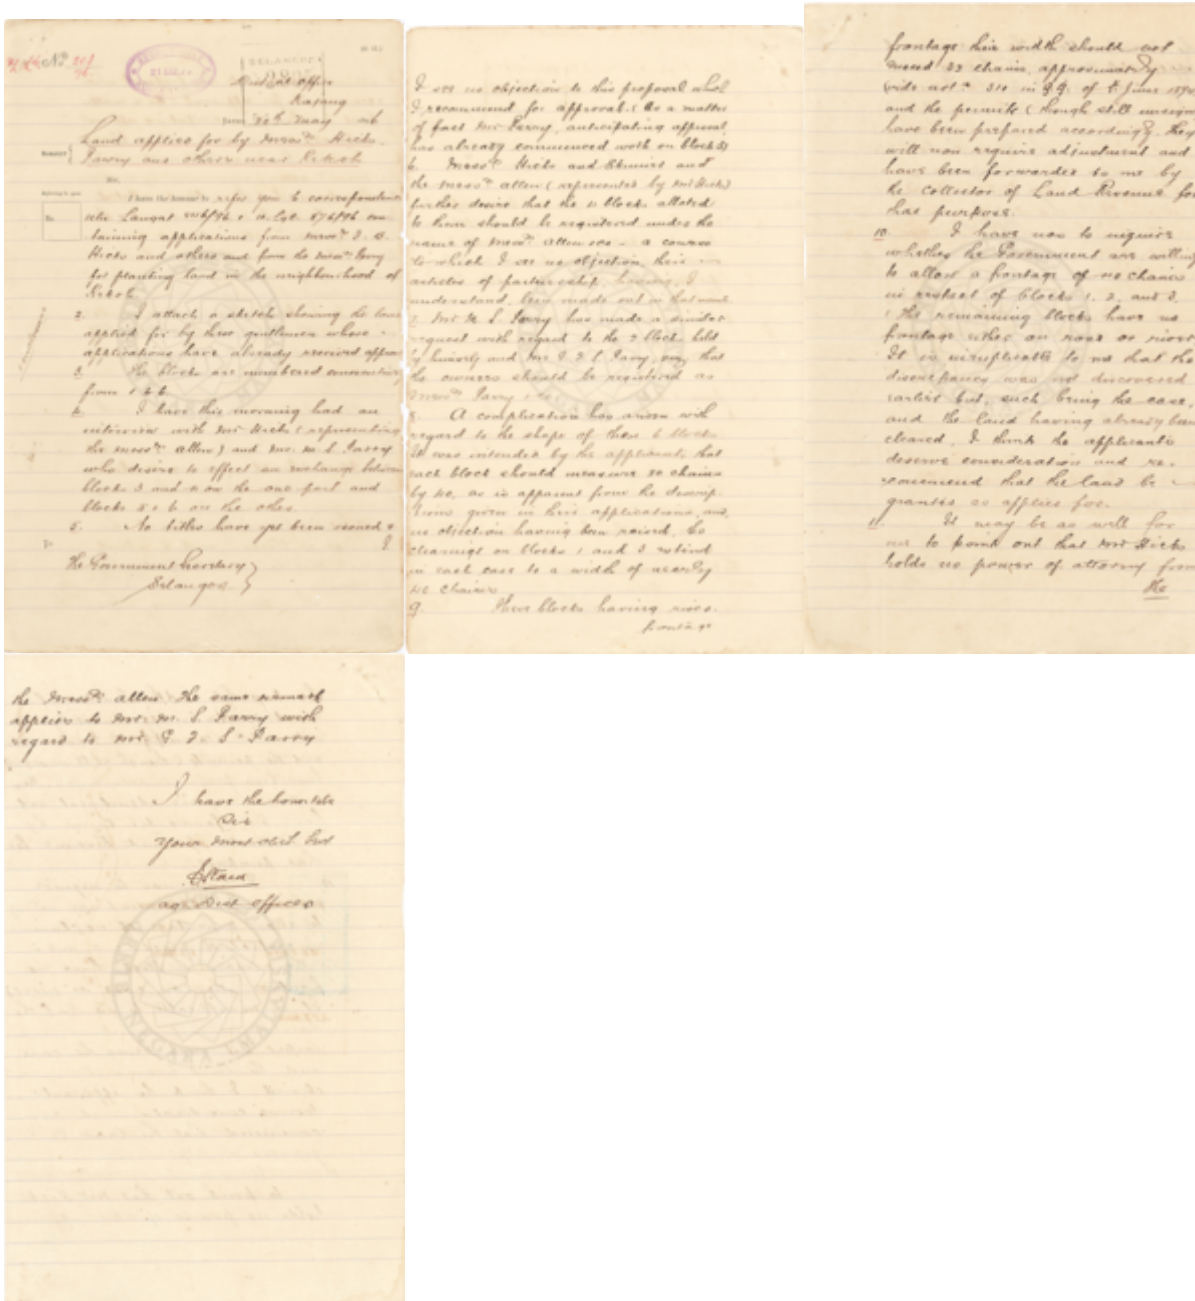 No 208/96
21 AUG
SELANGOR
District Office
Kajang
30th May 96
Land applied for by Messrs Hicks
Parry and others near Reko
Sir,
I have the honour to refer you to correspondence
containing applications from Messrs
Hicks and others and from the Messrs Parry
for planting land in the neighbourhood of
Reko
2. I attach a sketch showing the land
applied for by these gentlemen whose
applications have already received approval
3. The blocks are numbered consecutively
from 1 to 6
4. I have this morning had an
interview with Mr Hicks (representing
the Messrs Allen) and Mr. M. S. Parry
who desire to effect an exchange between
blocks 3 and 4 on the one part and
blocks 5 & 6 on the other.
5. No titles have yet been issued &
I
The Government Secretary
Selangor
I see no objection to this proposal which
I recommend for approval. (As a matter
of fact Mr Parry, anticipating approval,
has already commenced work on block 3)
6. Messrs Hicks and and
the Messrs Allen (represented by Mr Hicks)
further desire that the 4 blocks allotted
to them should be registered under the
name of Messrs Allen &Co - a course
to which I see no objection, their
articles of partnership having, I
understand, been made out in that name
7. Mr M. S. Parry has made a similar
request with regard to the 2 blocks held
by himself and Mr P. J. S. Parry, viz that
the owners should be registered as
Messrs Parry & Co.
8. A complication has arisen with
regard to the shape of these 6 blocks
It was intended by the applicants that
each block should measure 80 chains
by 40, as is apparent from the descrip-
tions given in their applications, and,
no objection having been raised, the
clearings on blocks 1 and 3 extend
in each case to a width of nearly
40 chains
9. These blocks having river
frontage
frontage their width should not
exceed 32 chains, approximately
(vide Notn 310 in G.G. of 8 June 1894)
and the permits (though still unsigned)
have been prepared accordingly. They
will now require adjustment and
have been forwarded to me by
the Collector of Land Revenue for
that purpose.
10. I have now to inquire
whether the Government are willing
to allow a frontage of 40 chains
in respect of blocks 1. 2. and 3.
(The remaining blocks have no
frontage either on road or river)
It is inexplicable to me that the
discrepancy was not discovered
earlier but, such being the case,
and the land having already been
cleared, I think the applicants
deserve consideration and re-
commend that the land be
granted as applied for.
11. It may be as well for
me to point out that Mr Hicks
holds no power of attorney from
the
the Messrs Allen. The same remark
applies to Mr. M. S. Parry with
regard to Mr. P. J. S. Parry
I have the honor to be
Sir
Your most obdt Svt
ag: Dist Officer
NEGARA